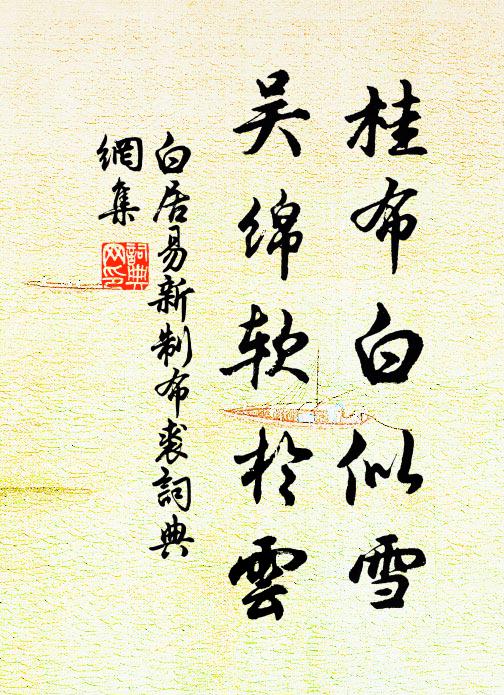 桂布白似雪
吴绵软於雲
白居易新制布裘詞典
網集
詞典
网印